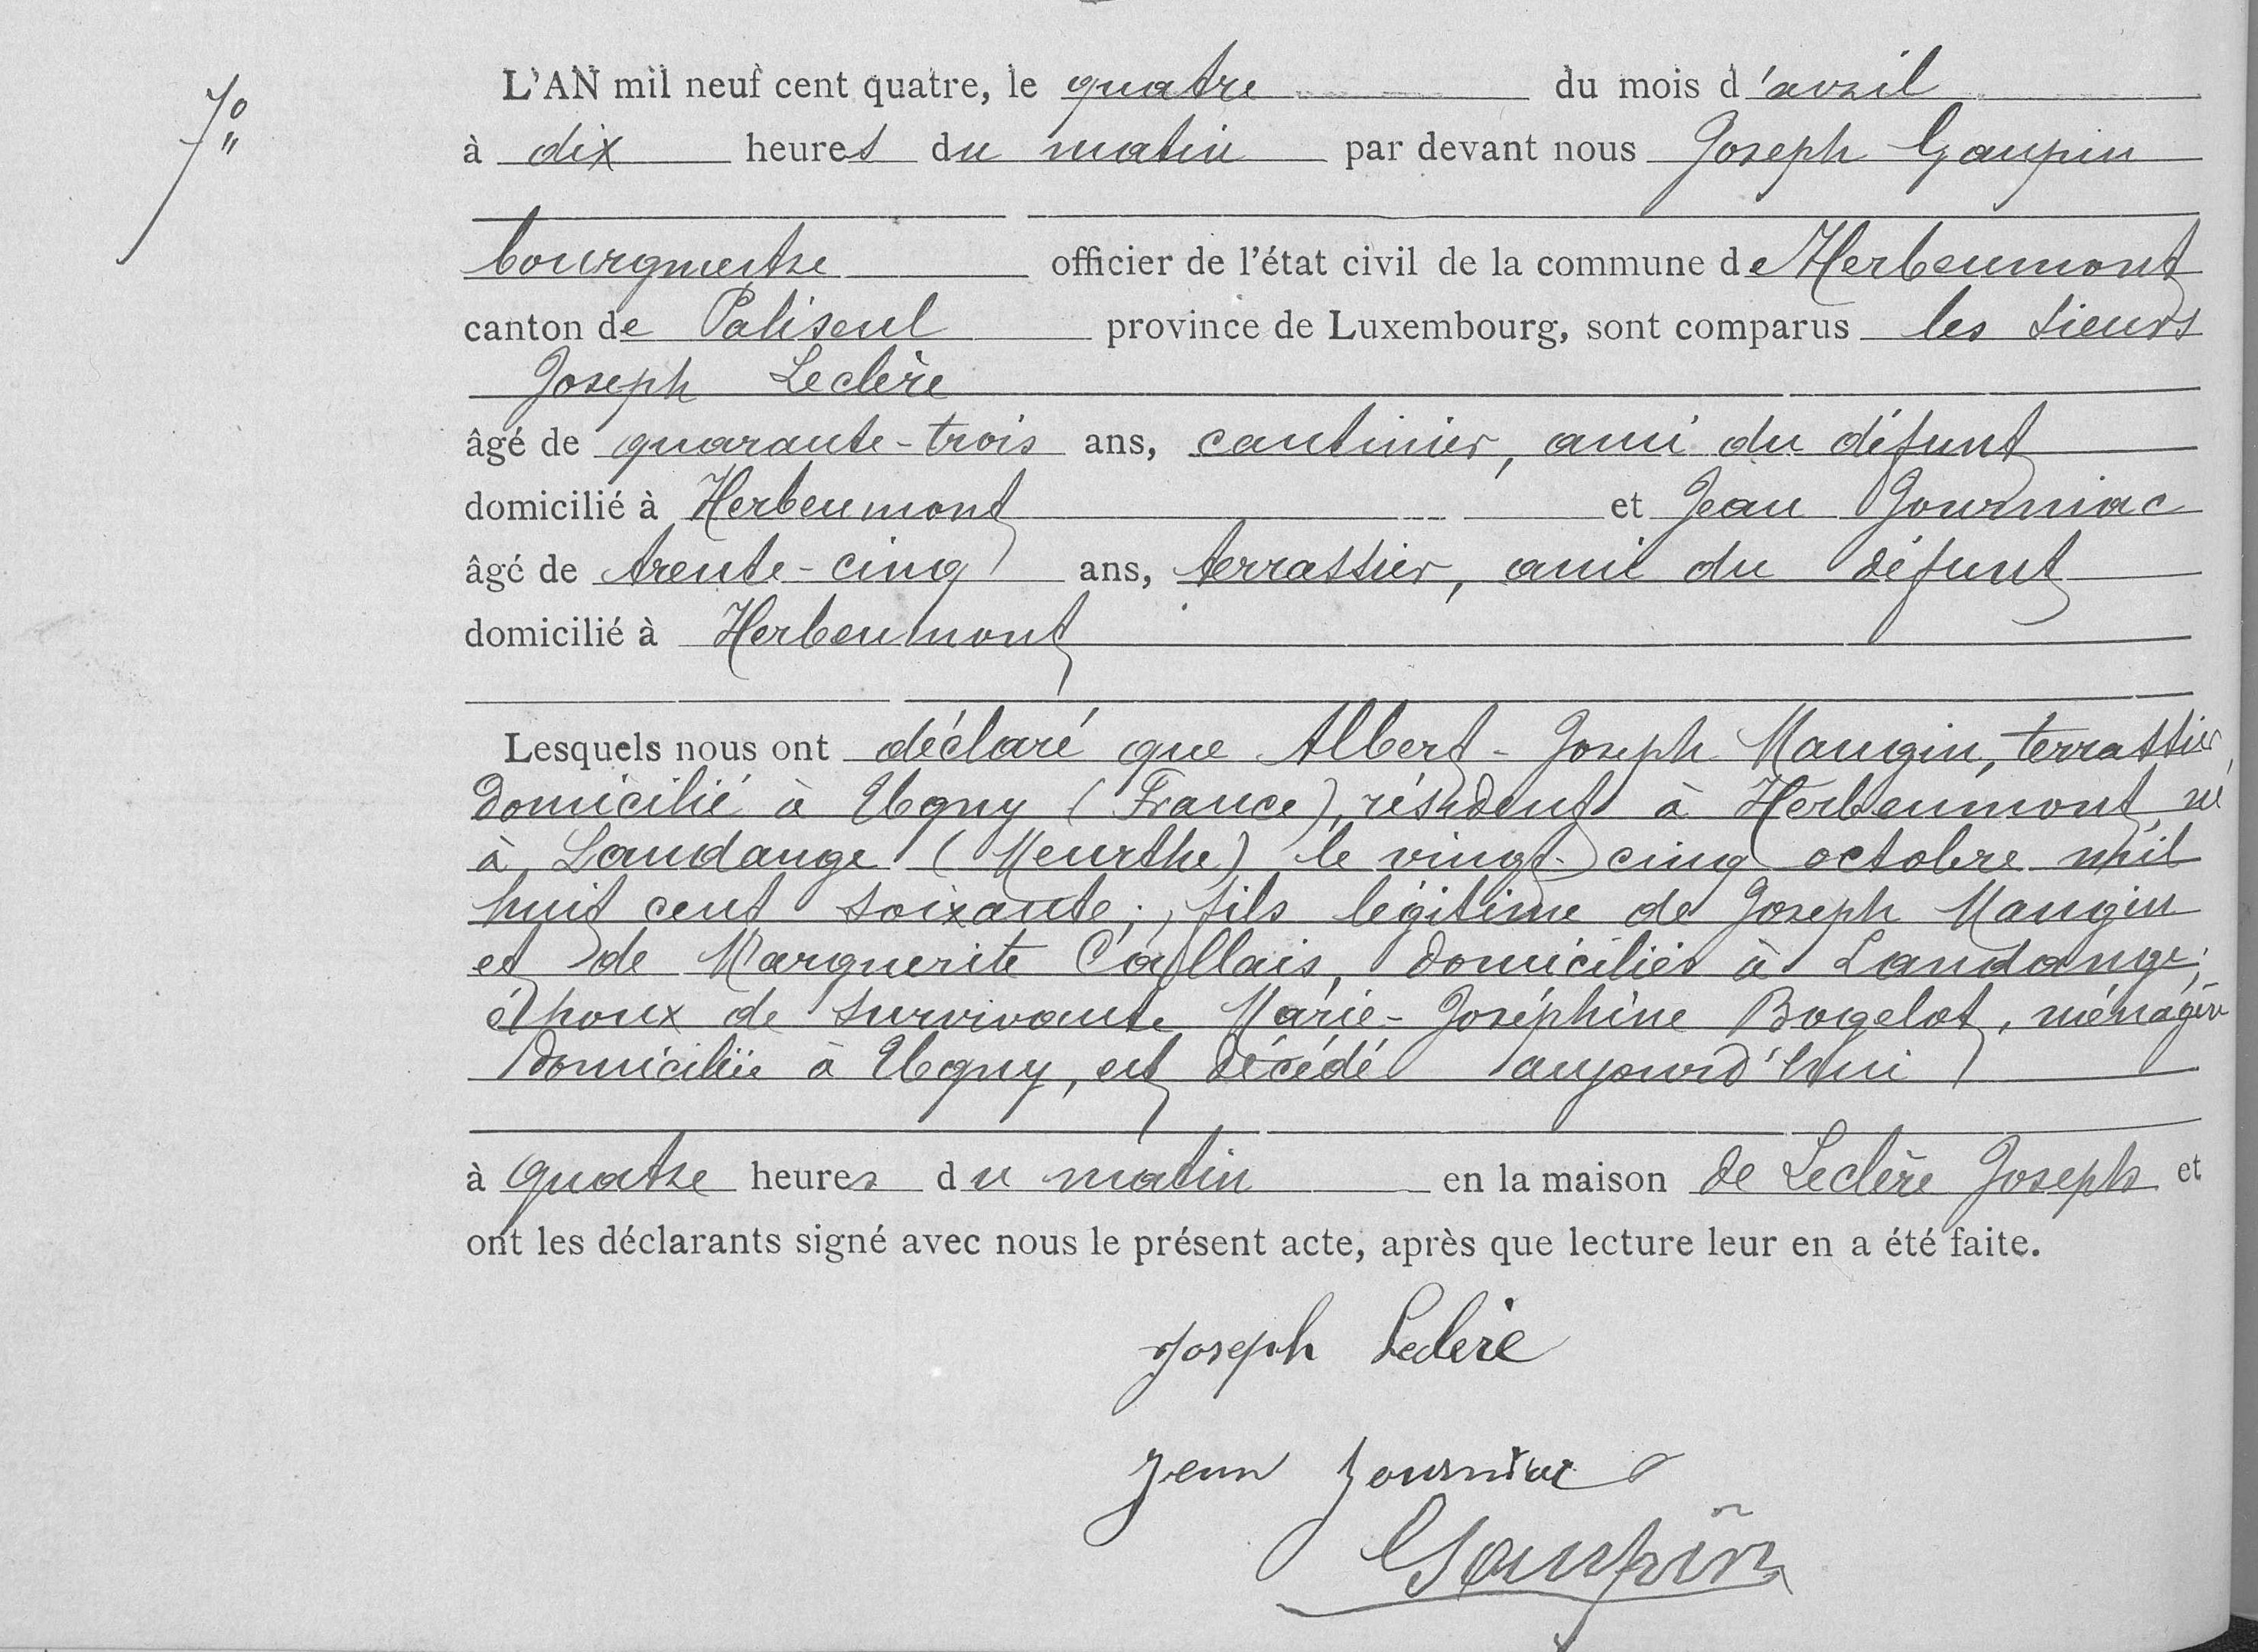 7°
L'AN mil neuf cent quatre, le quatre du mois d'avril
à dix heures du matin par devant nous Joseph Gaupin
bourgmestre officier de l'état civil de la commune de Herbeumont
canton de Paliseul province de Luxembourg, sont comparus les sieurs
Joseph Leclère
âgé de quarante-trois ans, cantinier, ami du défunt
domicilié à Herbeumont et Jean Journiac
âgé de trente-cinq ans, terrassier, ami du défunt
domicilié à Herbeumont
Lesquels nous ont déclaré que Albert-Joseph Maugin, terrassier,
domicilié à Ugny (France), résident à Herbeumont, né
à Landange (Meurthe) le vingt-cinq octobre mil
huit cent soixante; fils légitime de Joseph Maugin
et de Marguerite Callais, domiciliés à Landange;
époux de survivante Marie-Joséphine Bogelot, ménagère
domiciliée à Ugny, est décédé aujourd'hui
à quatre heures du matin en la maison de Leclère Joseph et
ont les déclarants signé avec nous le présent acte, après que lecture leur en a été faite.
Joseph Leclère
Jean Journiac
Gaupin